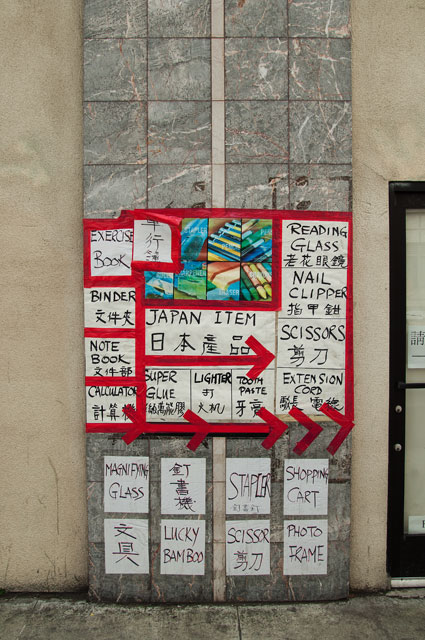 EXERCISE
BOOK
單行
簿
STAPLER
READING
GLASS
老花眼鏡
NAIL
CLIPPER
指甲鉗
BINDER
文件夾
JAPAN ITEM
日本產品
SCISSORS
剪刀
NOTE
BOOK
文件部
CALCULATOR
計算機
SUPER
GLUE
萬能膠
LIGHTER
打
火机
TOOTH
PASTE
牙膏
EXTENSION
CORD
電線
MAGNIFYING
GLASS
釘
書
機
STAPLER
SHOPPING
CART
文
具
LUCKY
BAMBOO
SCISSOR
剪刀
PHOTO
FRAME
請